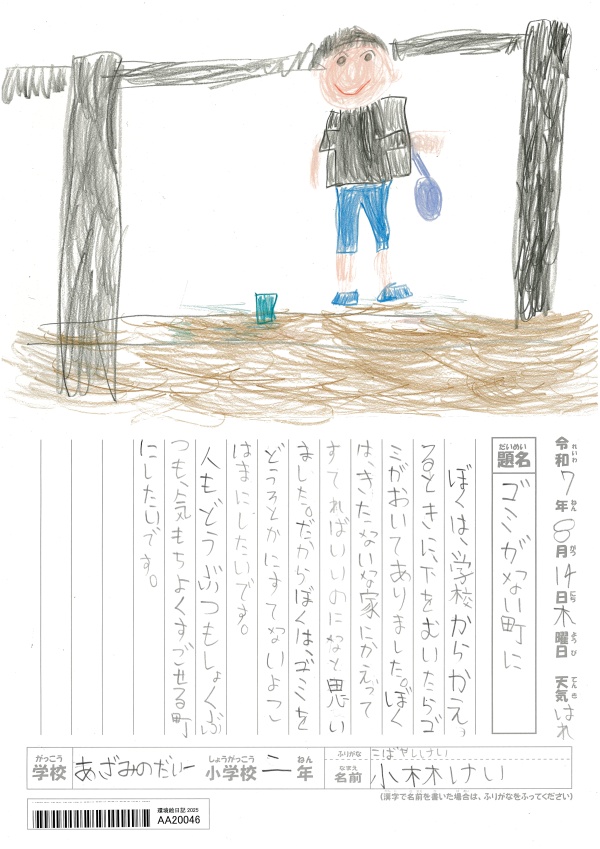 令和7年8月14日木曜日 天気 はれ
れいわ ねん がつ にち ようび てんき
だいめい
題名 ゴミがない町に
ぼくは、学校からかえっ
るときに、下をむいたらゴ
ミがおいてありました。ぼく
は、きたないな家にかえって
すてればいいのになと思い
ました。だからぼくは、ゴミを
どうろとかにすてないよこ
はまにしたいです。
人も、どうぶつもしょくぶ
つも、気もちよくすごせる町
にしたいです。
がっこう しょうがっこう ねん
学校 あざみのだい一 小学校 二 年
ふりがな こばやしけい
なまえ
名前 小林けい
(漢字で名前を書いた場合は、ふりがなをふってください)
環境絵日記 2025
AA20046